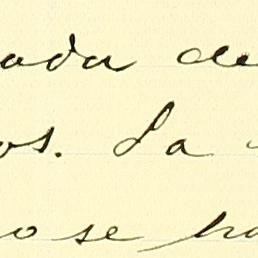 ada de
os. La
o se pa